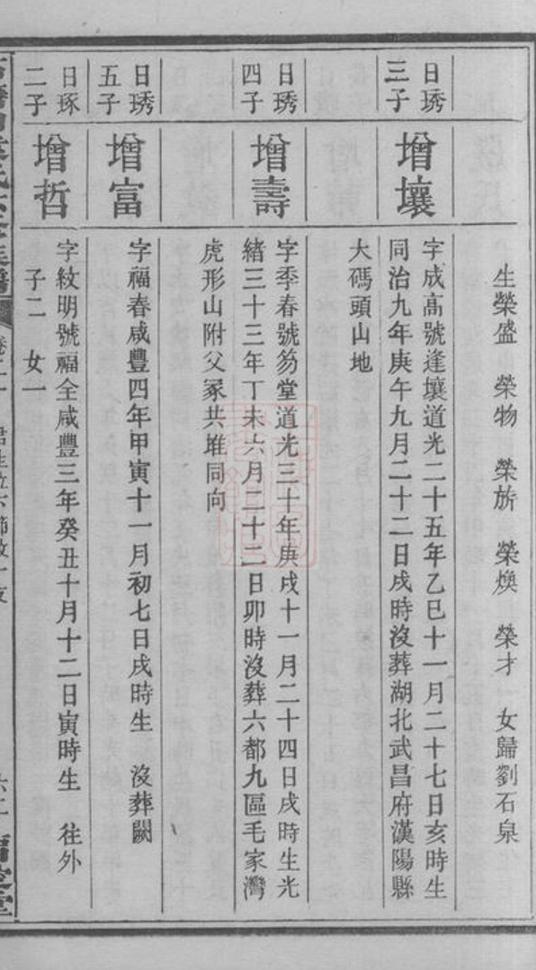 生榮盛 榮物 榮旂 榮煥 榮才 女歸劉石泉
日琇三子
增壤
字成高號逢壤道光二十五年乙巳十一月二十七日亥時生
同治九年庚午九月二十二日戌時沒葬湖北武昌府漢陽縣
大碼頭山地
日琇四子
增壽
字季春號笏堂道光三十年庚戌十一月二十四日戌時生光
緒三十三年丁未六月二十二日卯時沒葬六都九區毛家灣
虎形山附父冢共堆同向
日琇五子
增富
字福春咸豐四年甲寅十一月初七日戌時生 沒葬闕
日琢二子
增哲
字紋明號福全咸豐三年癸丑十月十二日寅時生 往外
子二 女一